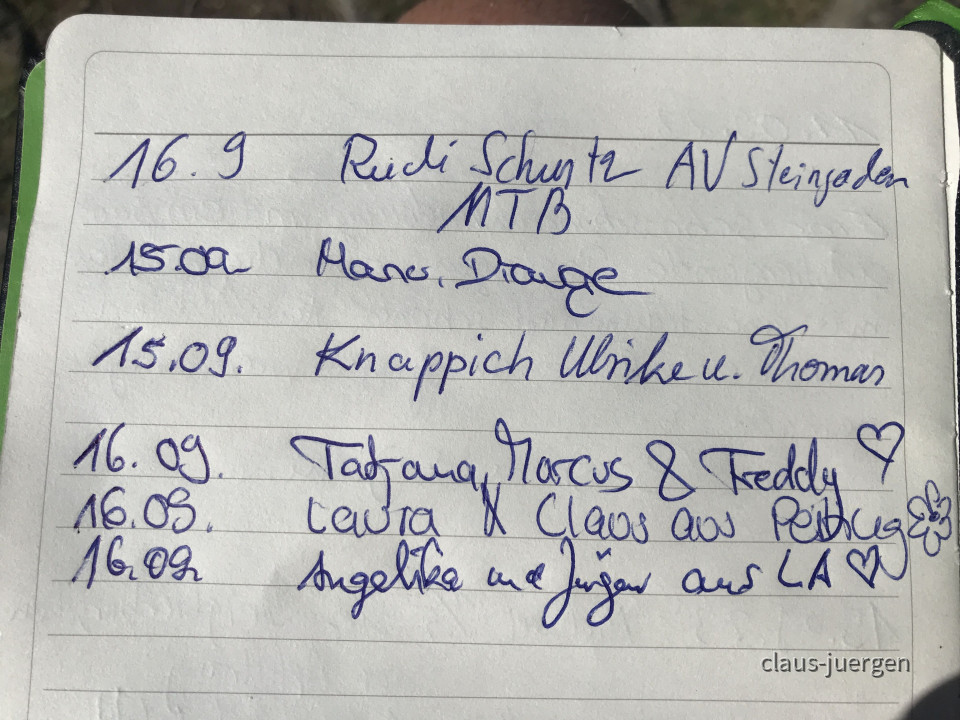 16.9 Rudi AV Steingaden
MTB
15.09
15.09. Knappich Ulrike u. Thomas
16.09. Tatjana, Marcus & Freddy ♡
16.09. Laura & Claus aus Peiting
16.09. Angelika und Jürgen aus LA ♡
claus-juergen